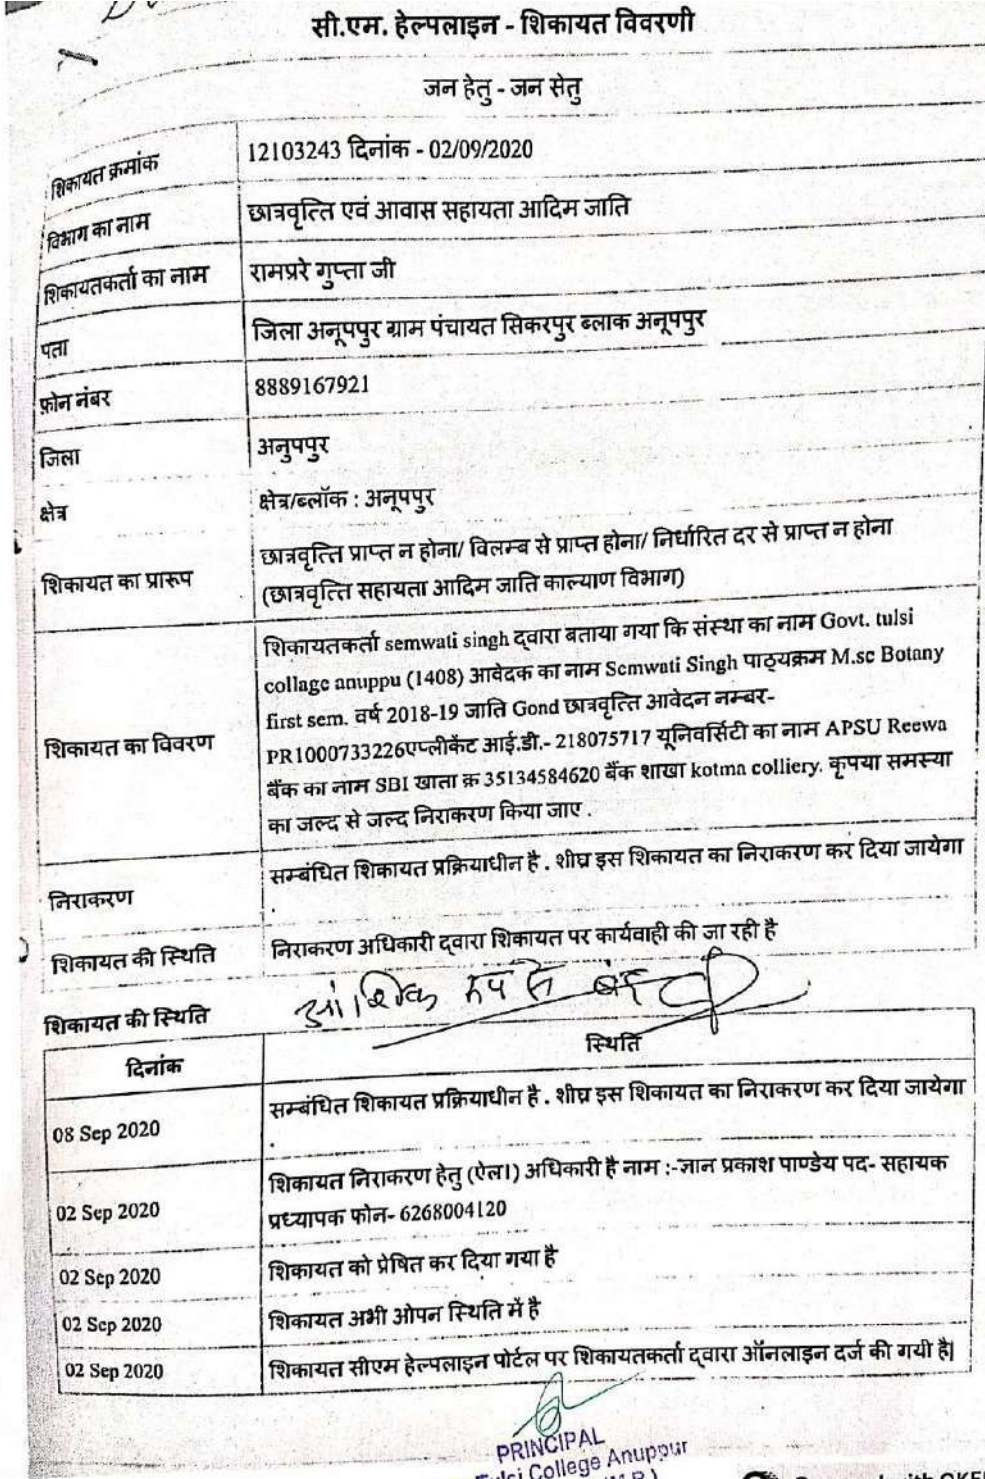 सी.एम. हेल्पलाइन - शिकायत विवरणी
जन हेतु - जन सेतु
शिकायत क्रमांक 12103243 दिनांक - 02/09/2020
विभाग का नाम छात्रवृत्ति एवं आवास सहायता आदिम जाति
शिकायतकर्ता का नाम रामप्ररे गुप्ता जी
पता जिला अनूपपुर ग्राम पंचायत सिकरपुर ब्लाक अनूपपुर
फ़ोन नंबर 8889167921
जिला अनुपपुर
क्षेत्र क्षेत्र/ब्लॉक : अनूपपुर
शिकायत का प्रारूप छात्रवृत्ति प्राप्त न होना/ विलम्ब से प्राप्त होना/ निर्धारित दर से प्राप्त न होना
(छात्रवृत्ति सहायता आदिम जाति काल्याण विभाग)
शिकायत का विवरण शिकायतकर्ता semwati singh द्वारा बताया गया कि संस्था का नाम Govt. tulsi
collage anuppu (1408) आवेदक का नाम Semwati Singh पाठ्यक्रम M.sc Botany
first sem. वर्ष 2018-19 जाति Gond छात्रवृत्ति आवेदन नम्बर-
PR1000733226एप्लीकेंट आई.डी.- 218075717 यूनिवर्सिटी का नाम APSU Reewa
बैंक का नाम SBI खाता क्र 35134584620 बैंक शाखा kotma colliery. कृपया समस्या
का जल्द से जल्द निराकरण किया जाए .
निराकरण सम्बंधित शिकायत प्रक्रियाधीन है . शीघ्र इस शिकायत का निराकरण कर दिया जायेगा
.
शिकायत की स्थिति निराकरण अधिकारी द्वारा शिकायत पर कार्यवाही की जा रही है
आंशिक रूप से बंद
शिकायत की स्थिति
दिनांक स्थिति
08 Sep 2020 सम्बंधित शिकायत प्रक्रियाधीन है . शीघ्र इस शिकायत का निराकरण कर दिया जायेगा
.
02 Sep 2020 शिकायत निराकरण हेतु (ऐल1) अधिकारी है नाम :-ज्ञान प्रकाश पाण्डेय पद- सहायक
प्रध्यापक फोन- 6268004120
02 Sep 2020 शिकायत को प्रेषित कर दिया गया है
02 Sep 2020 शिकायत अभी ओपन स्थिति में है
02 Sep 2020 शिकायत सीएम हेल्पलाइन पोर्टल पर शिकायतकर्ता द्वारा ऑनलाइन दर्ज की गयी है|
PRINCIPAL
Tulsi College Anuppur